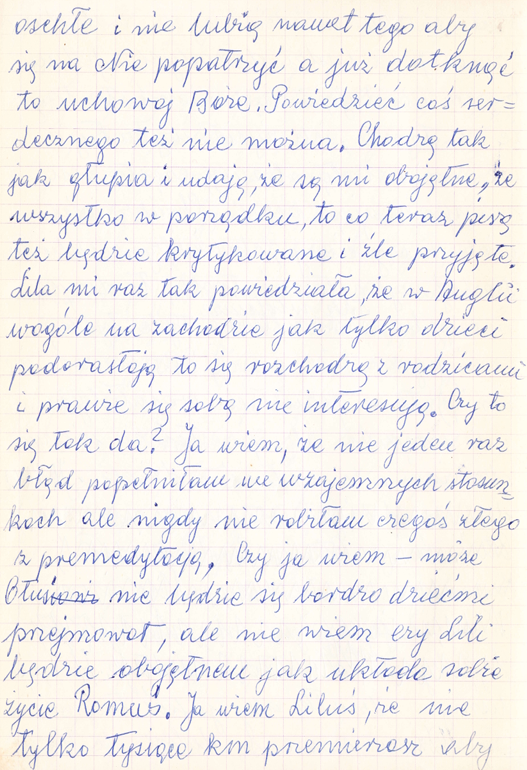 oschłe i nie lubią nawet tego aby
się na Nie popatrzyć a już dotknąć
to uchowaj Boże. Powiedzieć coś ser=
decznego też nie można. Chodzę tak
jak głupia i udaję, że są mi obojętne, że
wszystko w porządku, to co teraz piszę
też będzie krytykowane i źle przyjęte.
Lila mi raz tak powiedziała, że w Anglii
wogóle na zachodzie jak tylko dzieci
podorastają to się rozchodzą z rodzicami
i prawie się sobą nie interesują. Czy to
się tak da? Ja wiem, że nie jeden raz
błąd popełniłam we wzajemnych stosun=
kach ale nigdy nie robiłam czegoś złego
z premedytacją. Czy ja wiem – może
nie będzie się bardzo dziećmi
przejmował, ale nie wiem czy Lili
będzie obojętnem jak układa sobie
życie Romuś. Ja wiem Liluś, że nie
tylko tysiące km przemierzasz aby